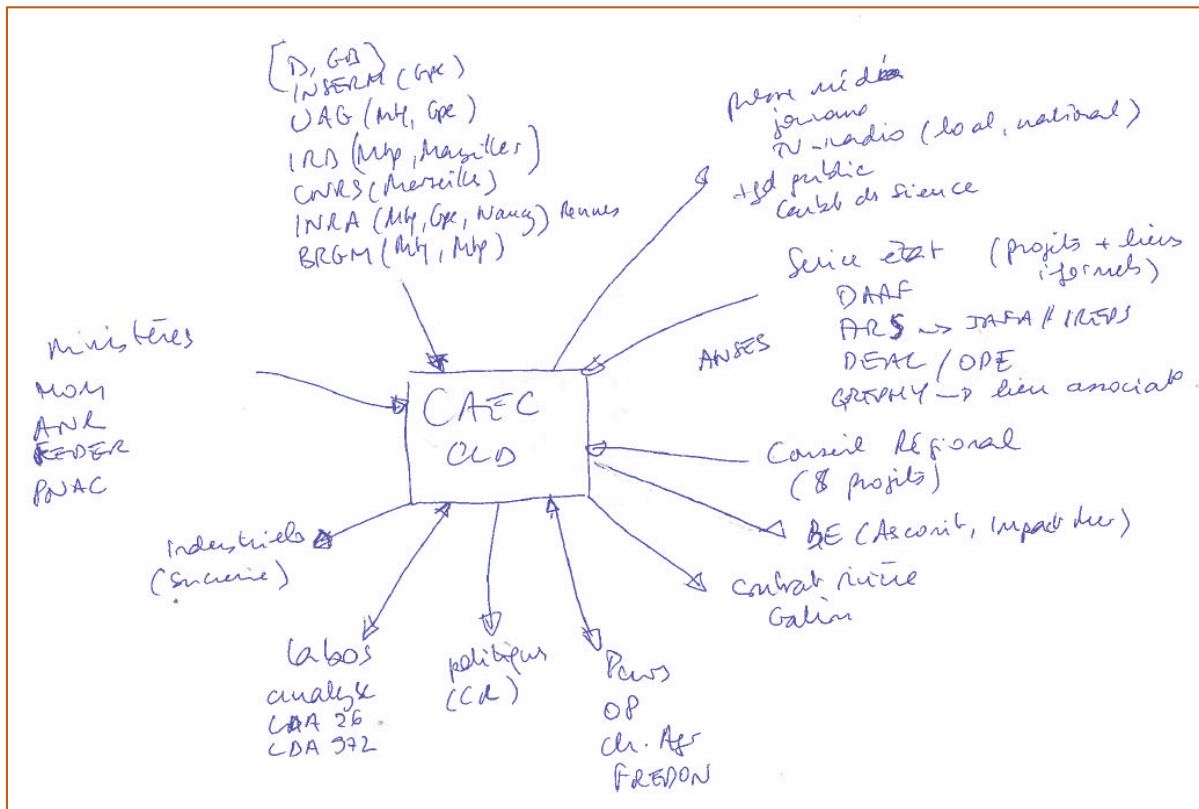 [D, GB]
INSERM (Gpe)
UAG (Mq, Gpe)
IRD (Mtp, Marseilles)
CNRS (Marseille)
INRA (Mtp, Gpe, Nancy) Rennes
BRGM (Mq, Mtp)
presse média
journaux
TV-radio (local, national)
+gd public
de science
Service état (projets + liens
informels)
DAAF
ARS → JAFA / IREPS
ANSES
DEAL / ODE
GREPHY → lien associat.
Ministères
MOM
ANR
FEDER
PNAC
CAEC
CLD
Conseil Régional
(8 projets)
BE (Asconit, Impact Mer)
contrat rivière
Galion
industriels
(sucrerie)
labos
analyse
LDA 26
LDA 972
politiques
(CR)
OP
Ch. Agr
FREDON